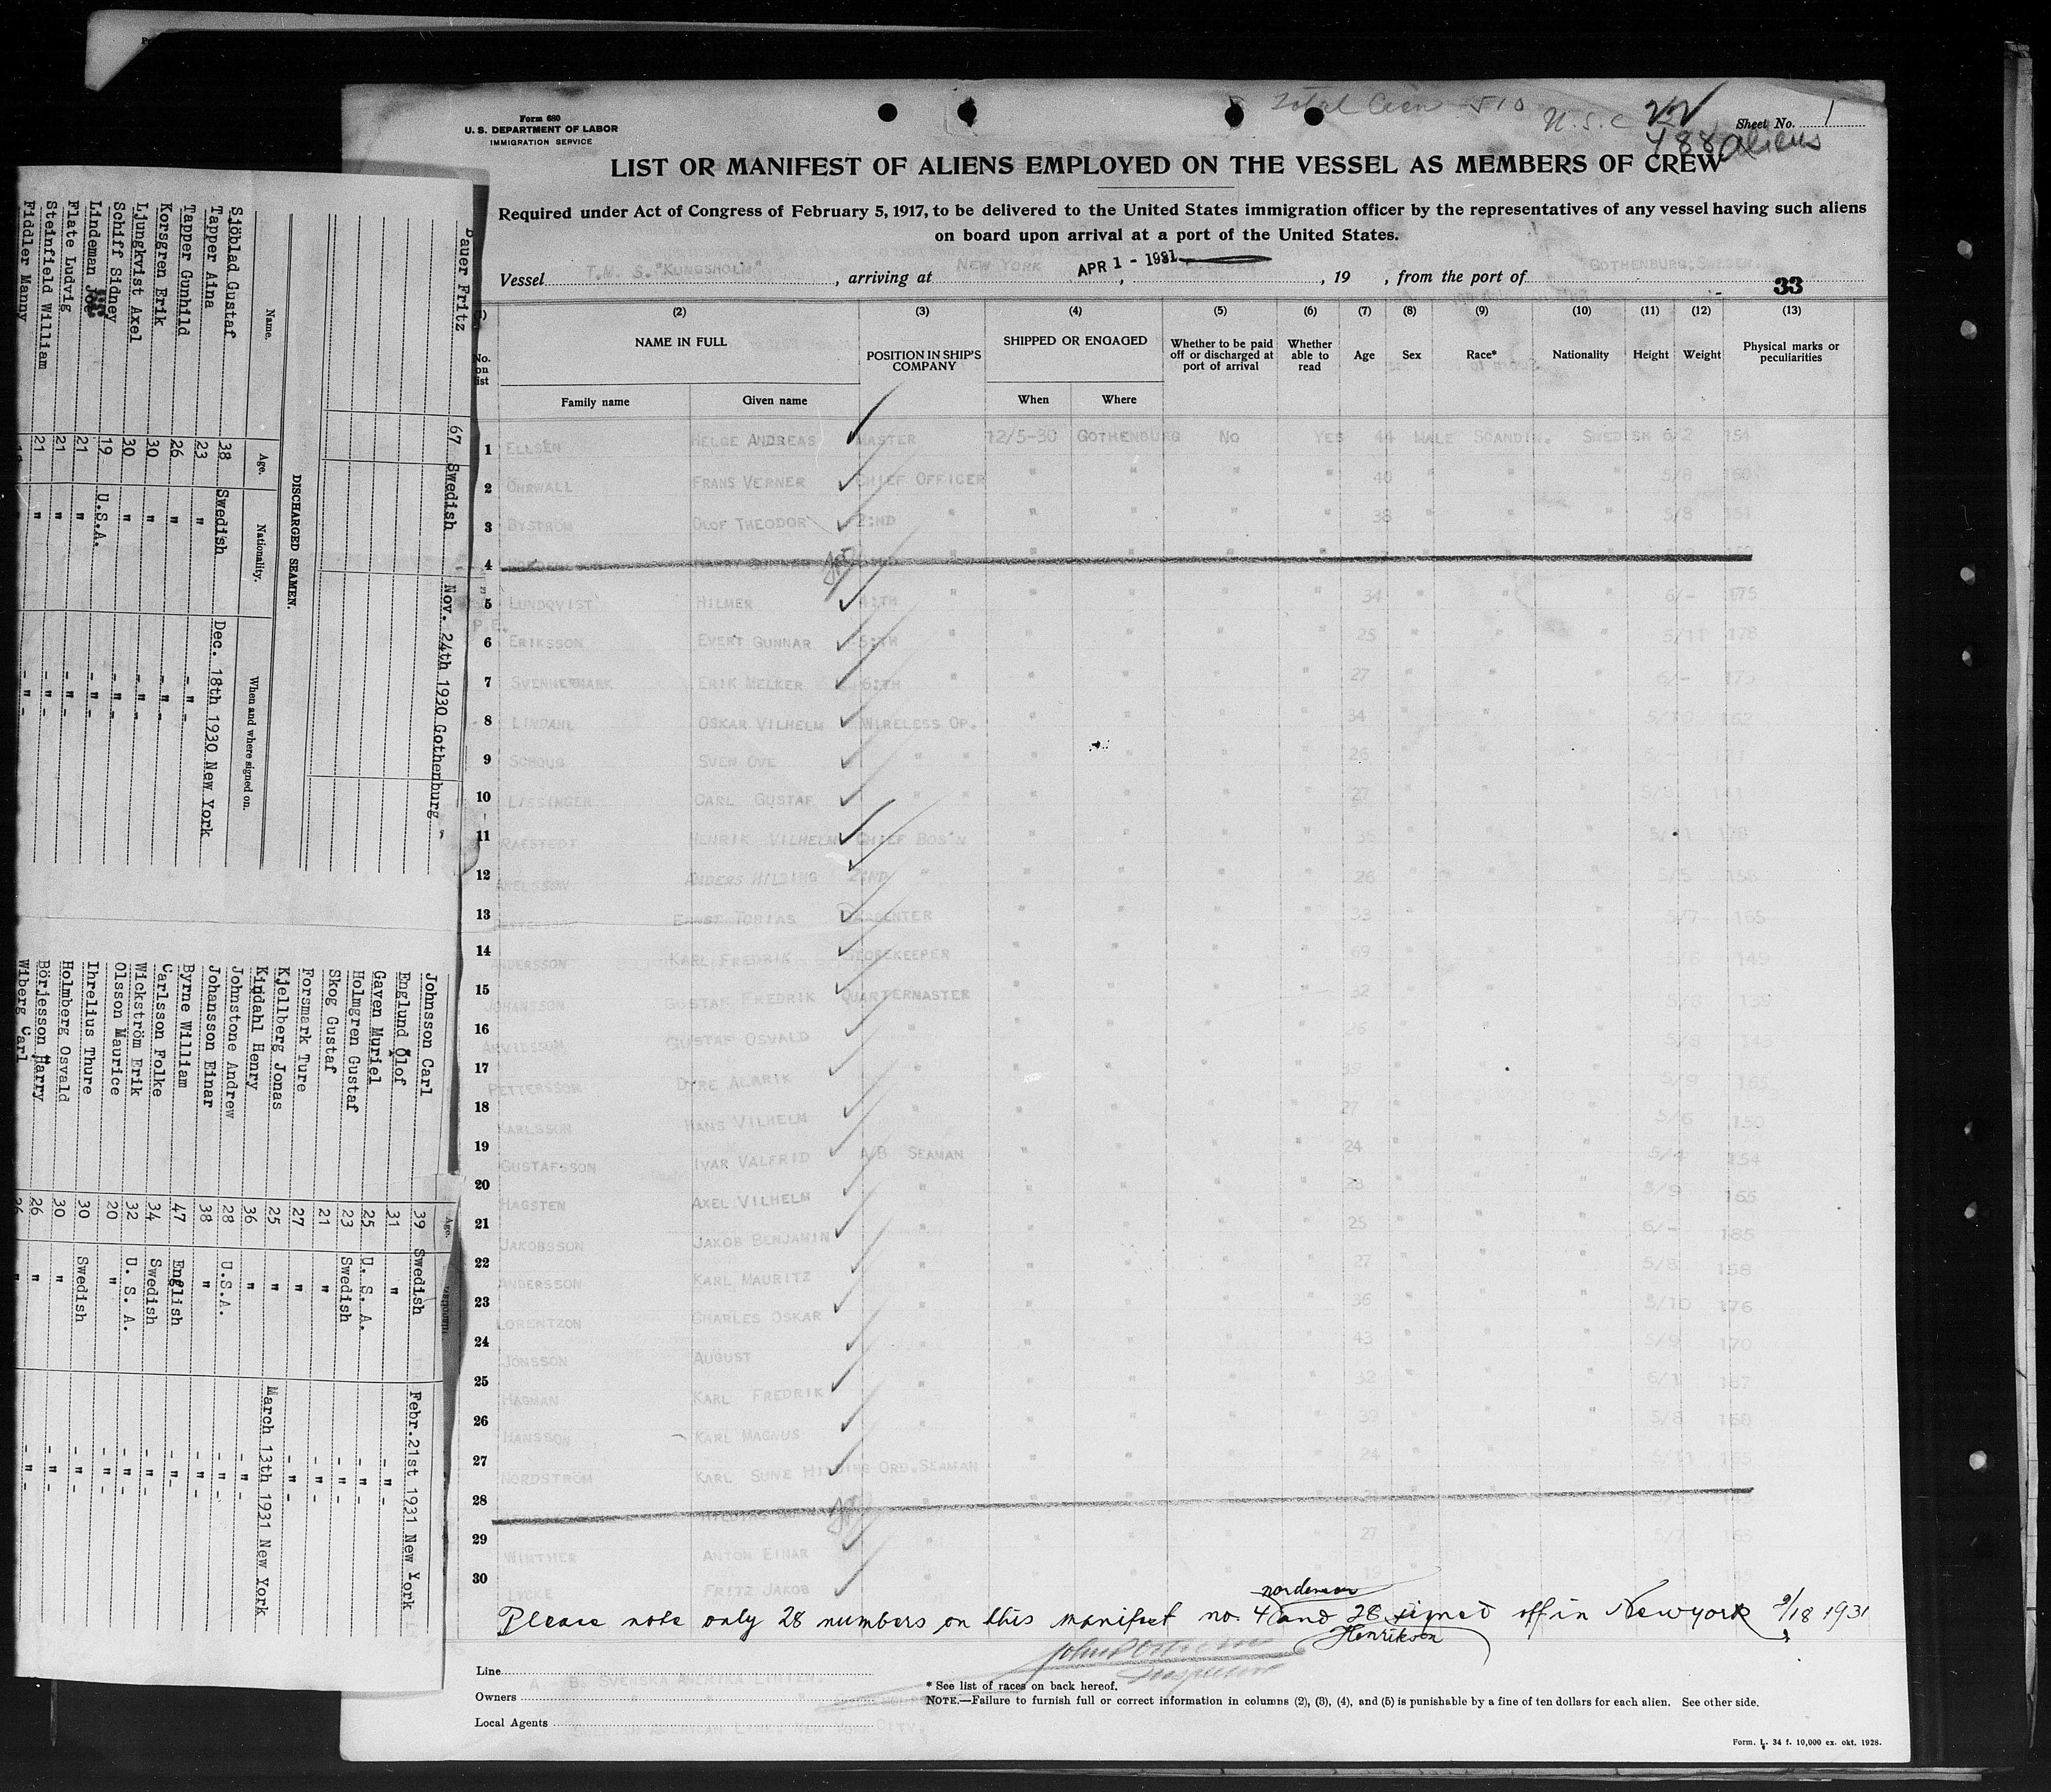 Form 680
U. S. DEPARTMENT OF LABOR
IMMIGRATION SERVICE
Total Crew 510
U.S.C. 22
488 Aliens
Sheet No. 1
LIST OR MANIFEST OF ALIENS EMPLOYED ON THE VESSEL AS MEMBERS OF CREW
Required under Act of Congress of February 5, 1917, to be delivered to the United States immigration officer by the representatives of any vessel having such aliens
on board upon arrival at a port of the United States.
Vessel T.M. S. "KUNGSHOLM", arriving at NEW YORK APR 1 - 1931, 19 , from the port of GOTHENBURG, SWEDEN.
33
(1) (2) (3) (4) (5) (6) (7) (8) (9) (10) (11) (12) (13)
No. on list NAME IN FULL POSITION IN SHIP'S COMPANY SHIPPED OR ENGAGED Whether to be paid off or discharged at port of arrival Whether able to read Age Sex Race* Nationality Height Weight Physical marks or peculiarities
Family name Given name When Where
1 ELLSEN HELGE ANDREAS MASTER 12/5-30 GOTHENBURG NO YES 44 MALE SCANDIN. SWEDISH 6/2 154
2 ÖHRWALL FRANS VERNER CHIEF OFFICER " " " " 40 " " " 5/8 160
3 BYSTRÖM OLOF THEODOR 2:ND " " " " " 38 " " " 5/8 151
4
5 LUNDQVIST HILMER 4:TH " " " " " 34 " " " 6/- 175
P.E.
6 ERIKSSON EVERT GUNNAR 5:TH " " " " " 25 " " " 5/11 178
7 SVENNERMARK ERIK MELKER 6:TH " " " " " 27 " " " 6/- 175
8 LINDAHL OSKAR VILHELM WIRELESS OP. " " " " 34 " " " 5/10 162
9 SCHOUG SVEN OVE " " " " " " 26 " " "
10 LISSINGER CARL GUSTAF " " " " " " 27 " " " 141
11 RAFSTEDT HENRIK VILHELM CHIEF BOS'N " " " " 35 " " " 5/11 178
12 AXELSSON ANDERS HILDING 2:ND " " " " " 26 " " " 5/5 158
13 PETTERSSON ERNST TOBIAS CARPENTER " " " " 33 " " " 5/7 165
14 ANDERSSON KARL FREDRIK STOREKEEPER " " " " 69 " " " 5/6 149
15 JOHANSSON GUSTAF FREDRIK QUARTERMASTER " " " " 32 " " " 5/8 135
16 ARVIDSSON GUSTAF OSVALD " " " " " 26 " " " 5/8 143
17 PETTERSSON DYRE ALARIK " " " " " 39 " " " 5/9 165
18 KARLSSON HANS VILHELM " " " " " 27 " " " 5/6 150
19 GUSTAFSSON IVAR VALFRID A/B SEAMAN " " " " 24 " " " 5/4 154
20 HAGSTEN AXEL VILHELM " " " " " 23 " " " 5/9 165
21 JAKOBSSON JAKOB BENJAMIN " " " " " 25 " " " 6/- 185
22 ANDERSSON KARL MAURITZ " " " " " 27 " " " 5/8 158
23 LORENTZON CHARLES OSKAR " " " " " 36 " " " 5/10 176
24 JÖNSSON AUGUST " " " " " 43 " " " 5/9 170
25 HAGMAN KARL FREDRIK " " " " " 32 " " " 6/1 187
26 HANSSON KARL MAGNUS " " " " " 39 " " " 5/8 168
27 NORDSTRÖM KARL SUNE HILDING ORD. SEAMAN " " " " 24 " " " 5/11 155
28
29 WINTHER ANTON EINAR " " " " " 27 " " " 5/7 165
30 LYCKE FRITZ JAKOB 19
Please note only 28 numbers on this manifest no. 4 and 28 signed off in New york 2/18 1931
Henrikson
Inspector
Line
A. B. SVENSKA AMERIKA LINIEN.
Owners
Local Agents
SWEDISH AMERICAN LINE, NEW YORK CITY.
* See list of races on back hereof.
NOTE.—Failure to furnish full or correct information in columns (2), (3), (4), and (5) is punishable by a fine of ten dollars for each alien. See other side.
Form. L. 34 f. 10,000 ex. okt. 1928.
Bauer Fritz 67 Swedish Nov. 24th 1930 Gothenburg
DISCHARGED SEAMEN.
Name. Age. Nationality. When and where signed on.
Sjöblad Gustaf 38 Swedish Dec. 18th 1930 New York
Tapper Aina 23 " -"-
Tapper Gunhild 26 " -"-
Korsgren Erik 30 " -"-
Ljungkvist Axel 30 " -"-
Schiff Sidney 19 U.S.A. -"-
Lindeman Joe 21 " -"-
Flate Ludvig 21 " -"-
Steinfield William 21 " -"-
Fiddler Manny
Age.
Johnsson Carl 39 Swedish Febr. 21st 1931 New York
Englund Olof 31 " -"-
Gaven Muriel 25 U. S. A. -"-
Holmgren Gustaf 23 Swedish -"-
Skog Gustaf 21 " -"-
Forsmark Ture 27 " -"-
Kjellberg Jonas 25 " March 13th 1931 New York
Kindahl Henry 36 " -"-
Johnstone Andrew 28 U.S.A. -"-
Johansson Einar 38 " -"-
Byrne William 47 English -"-
Carlsson Folke 34 Swedish -"-
Wickström Erik 32 U. S. A. -"-
Olsson Maurice 20 " -"-
Ihrelius Thure 30 Swedish -"-
Holmberg Osvald 30 " -"-
Börjesson Harry 26 " -"-
Wiberg Carl 26 "